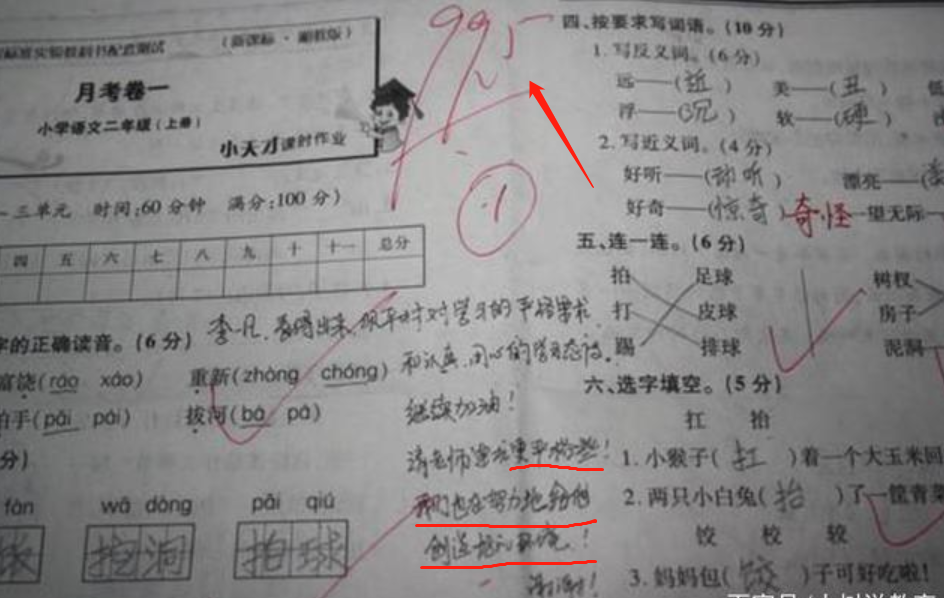 标准实验教科书配套测试
(新课标·湘教版)
月考卷一
小学语文二年级(上册)
小天才课时作业
三单元 时间:60分钟 满分:100分)
四 五 六 七 八 九 十 十一 总分
99.5
1
字的正确读音。(6分)
饶(ráo xáo) 重新(zhòng chóng)
拍手(pāi pái) 拔河(bá pá)
分)
fàn wā dòng pāi qiú
球 挖洞 拍球
对学习的严格要求
和认真、用心的学习态度。
继续加油!
请老师
我们也在努力地给他
创造
谢谢!
四、按要求写词语。(10分)
1.写反义词。(6分)
远——(近) 美——(丑) 低
浮——(沉) 软——(硬)
2.写近义词。(4分)
好听——(动听) 漂亮——(
好奇——(惊奇)奇怪 一望无际—
五、连一连。(6分)
拍 足球 树杈
打 皮球 房子
踢 排球 泥洞
六、选字填空。(5分)
扛 抬
1.小猴子(扛)着一个大玉米回
2.两只小白兔(抬)了一筐青菜
饺 校 较
3.妈妈包(饺)子可好吃啦!